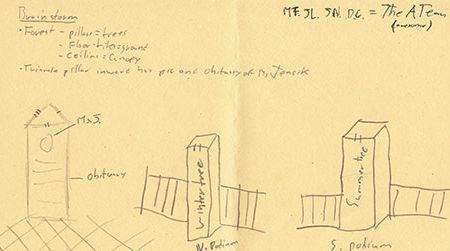 Brainstorm
MF. JL. SN. DG. = The A Team
(awesome)
• Forest - pillar = trees
- Floor tile = ground
- Ceiling = Canopy
• Triangle pillar inware has pic and obituary of Ms
Ms S.
Obituary
Winter tree
Summer tree
W. Podium
S. podium